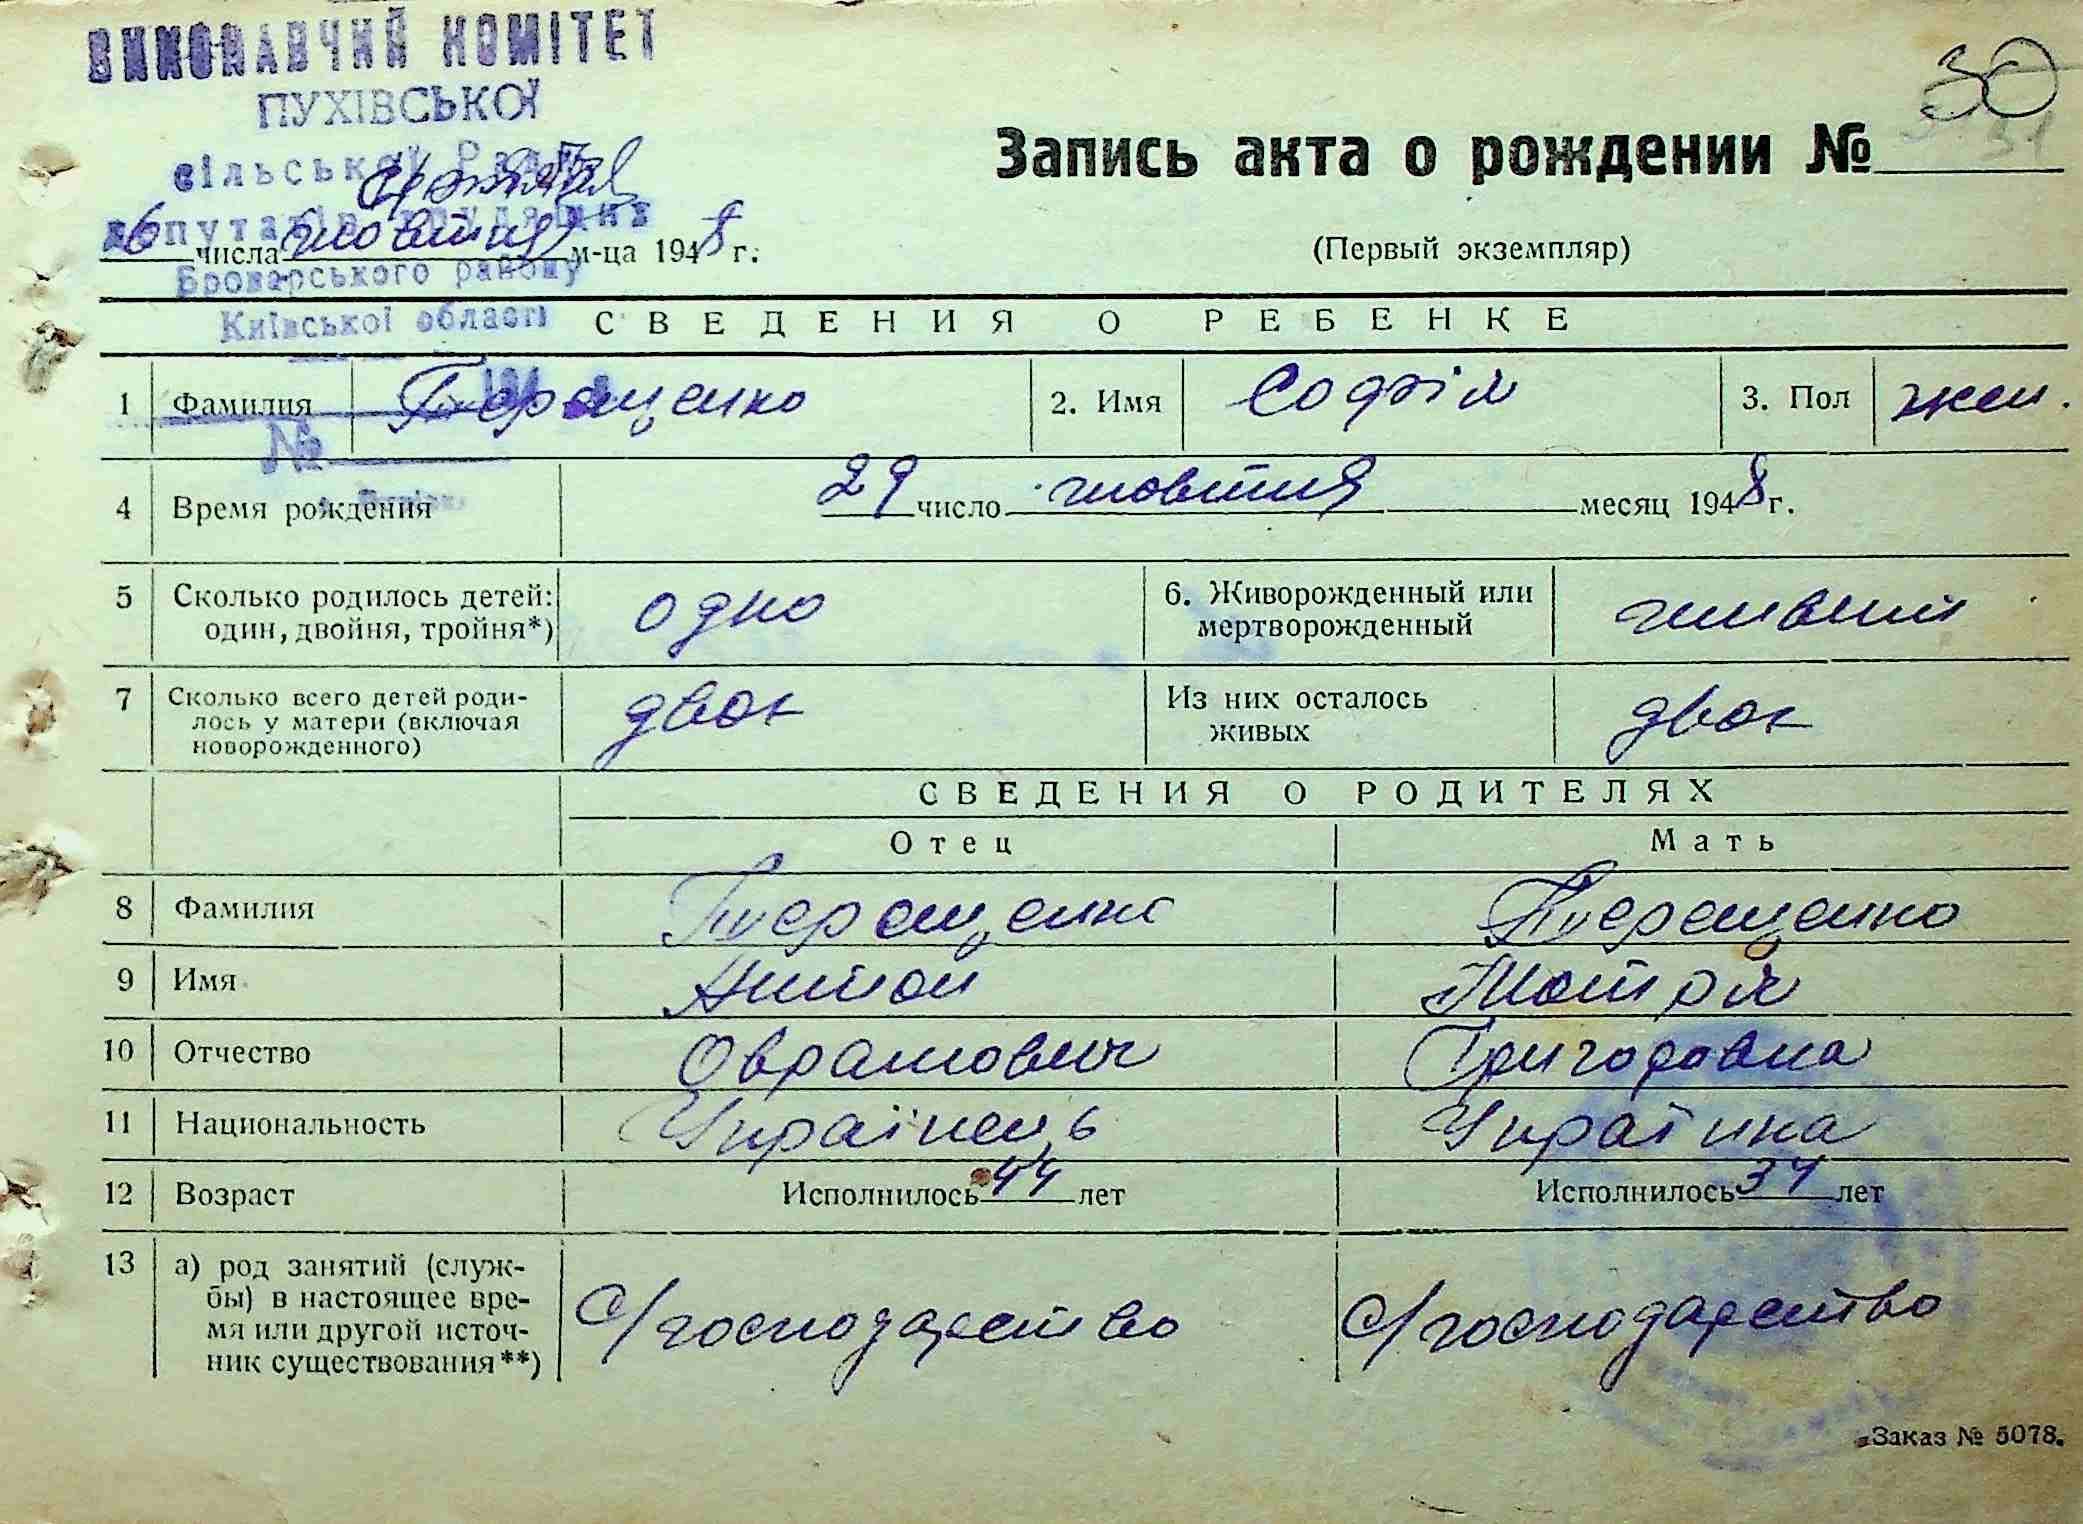 ВИКОНАВЧИЙ КОМІТЕТ
ПУХІВСЬКОЇ
сільської Ради
депутатів трудящих
Броварського району
Київської області
№
30
31
Запись акта о рождении №
6 числа жовтня м-ца 1948 г.
(Первый экземпляр)
СВЕДЕНИЯ О РЕБЕНКЕ
1 Фамилия Терещенко 2. Имя Софія 3. Пол жен.
4 Время рождения 29 число жовтня месяц 1948 г.
5 Сколько родилось детей: один, двойня, тройня*) одно 6. Живорожденный или мертворожденный живий
7 Сколько всего детей родилось у матери (включая новорожденного) двох Из них осталось живых двох
СВЕДЕНИЯ О РОДИТЕЛЯХ
Отец Мать
8 Фамилия Терещенко Терещенко
9 Имя Антон Мотря
10 Отчество Оврамович Григоровна
11 Национальность Українець Українка
12 Возраст Исполнилось 44 лет Исполнилось 34 лет
13 а) род занятий (служ-
бы) в настоящее вре-
мя или другой источ-
ник существования**) С/господарство С/господарство
Заказ № 5078.